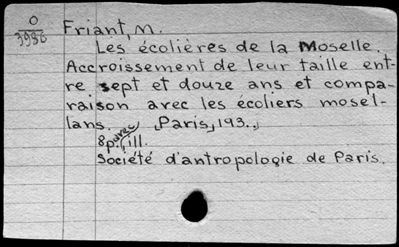 O
3986
Friant, M.
Les écolières de la Moselle.
Accroissement de leur taille ent-
re sept et douze ans et compa-
raison avec les écoliers mosel-
lans. [Paris, 193.,]
8 p. avec ill.
Société d'antropologie de Paris.